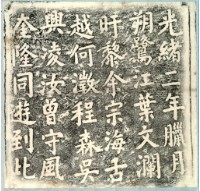 光緒二年臘月
朔鷺江葉文瀾
旴黎佘宗海古
越何澂程森吳
興凌汝曾守風
奎隆同遊到此